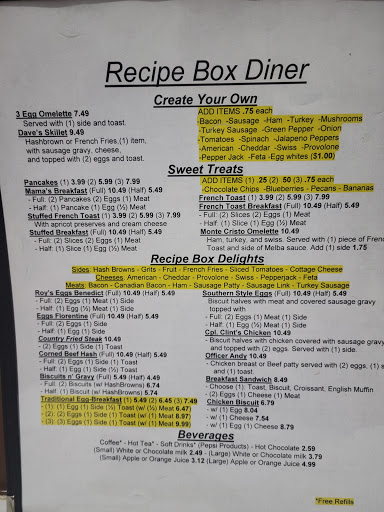 Recipe Box Diner
Create Your Own
3 Egg Omelette 7.49
Served with (1) side and toast.
Dave's Skillet 9.49
Hashbrown or French Fries,(1) item,
with sausage gravy, cheese,
and topped with (2) eggs and toast.
ADD ITEMS .75 each
-Bacon -Sausage -Ham -Turkey -Mushrooms
-Turkey Sausage -Green Pepper -Onion
-Tomatoes -Spinach -Jalapeno Peppers
-American -Cheddar -Swiss -Provolone
-Pepper Jack -Feta -Egg whites ($1.00)
Sweet Treats
Pancakes (1) 3.99 (2) 5.99 (3) 7.99
Mama's Breakfast (Full) 10.49 (Half) 5.49
- Full: (2) Pancakes (2) Eggs (1) Meat
- Half: (1) Pancake (1) Egg (½) Meat
Stuffed French Toast (1) 3.99 (2) 5.99 (3) 7.99
With apricot preserves and cream cheese
Stuffed Breakfast (Full) 10.49 (Half) 5.49
- Full: (2) Slices (2) Eggs (1) Meat
- Half: (1) Slice (1) Egg (½) Meat
ADD ITEMS (1) .25 (2) .50 (3) .75 each
-Chocolate Chips -Blueberries - Pecans - Bananas
French Toast (1) 3.99 (2) 5.99 (3) 7.99
French Toast Breakfast (Full) 10.49 (Half) 5.49
- Full: (2) Slices (2) Eggs (1) Meat
- Half: (1) Slice (1) Egg (½) Meat
Monte Cristo Omelette 10.49
Ham, turkey, and swiss. Served with (1) piece of French
Toast and side of Melba sauce. Add (1) side 1.75
Recipe Box Delights
Sides: Hash Browns - Grits - Fruit - French Fries - Sliced Tomatoes - Cottage Cheese
Cheeses: American - Cheddar - Provolone - Swiss - Pepperjack - Feta
Meats: Bacon - Canadian Bacon - Ham - Sausage Patty - Sausage Link - Turkey Sausage
Roy's Eggs Benedict (Full) 10.49 (Half) 5.49
- Full: (2) Eggs (1) Meat (1) Side
- Half: (1) Egg (½) Meat (1) Side
Eggs Florentine (Full) 10.49 (Half) 5.49
- Full: (2) Eggs (1) Side
- Half: (1) Egg (1) Side
Country Fried Steak 10.49
- (2) Eggs (1) Side (1) Toast
Corned Beef Hash (Full) 10.49 (Half) 5.49
- Full: (2) Eggs (1) Side (1) Toast
- Half: (1) Egg (1) Side (½) Toast
Biscuits n' Gravy (Full) 5.49 (Half) 4.49
- Full: (2) Biscuits (w/ HashBrowns) 6.74
- Half: (1) Biscuit (w/ HashBrowns) 5.74
Traditional Egg-Breakfast (1) 5.49 (2) 6.45 (3) 7.49
- (1) (1) Egg (1) Side (½) Toast (w/ (½) Meat) 6.47
- (2) (2) Eggs (1) Side (1) Toast (w/ (1) Meat) 8.97
- (3) (3) Eggs (1) Side (1) Toast (w/ (1) Meat) 9.99
Southern Style Eggs (Full) 10.49 (Half) 5.49
- Biscuit halves with meat and covered sausage gravy
topped with
- Full: (2) Eggs (1) Meat (1) Side
- Half: (1) Egg (½) Meat (1) Side
Cpl. Clint's Chicken 10.49
- Biscuit halves with chicken covered with sausage gravy
and topped with (2) eggs. Served with (1) side.
Officer Andy 10.49
- Chicken breast or Beef patty served with (2) eggs, (1)
and (1) toast.
Breakfast Sandwich 8.49
- Choose (1): Toast, Biscuit, Croissant, English Muffin
- (2) Eggs (1) Cheese (1) Meat
Chicken Biscuit 6.79
- w/ (1) Egg 8.04
- w/ (1) Cheese 7.54
- w/ (1) Egg (1) Cheese 8.79
Beverages
Coffee* - Hot Tea* - Soft Drinks* (Pepsi Products) - Hot Chocolate 2.59
(Small) White or Chocolate milk 2.49 - (Large) White or Chocolate milk 3.79
(Small) Apple or Orange Juice 3.12 (Large) Apple or Orange Juice 4.99
*Free Refills